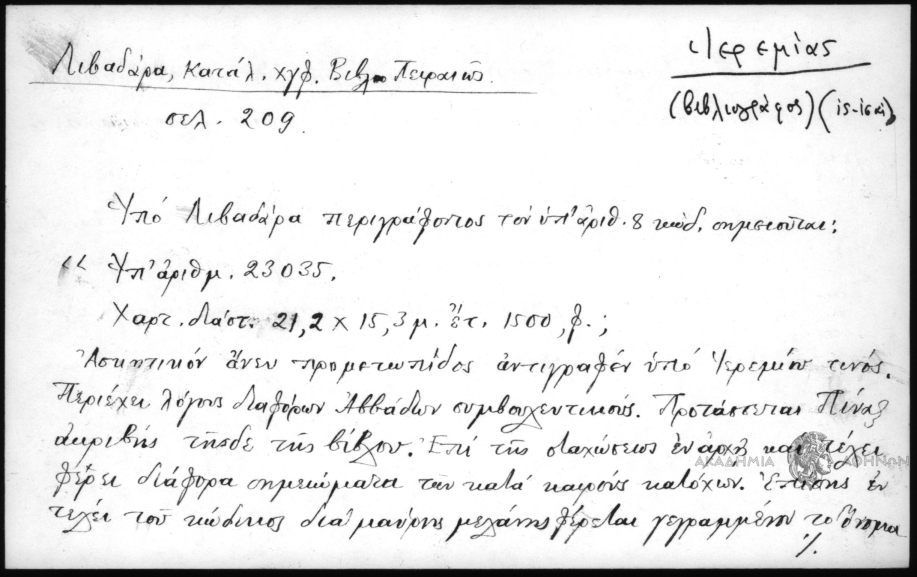 Λιβαδάρα, Κατάλ. χγφ. Βιβλ. Πειραιῶς
σελ. 209.
Ἱερεμίας
(βιβλιογράφος) (ις-ισαι)
Ὑπό Λιβαδάρα περιγράφοντος τόν ὑπ' ἀριθ. 8 κώδ. σημειοῦται:
«Ὑπ' ἀριθμ. 23035.
Χαρτ. διάστ. 21,2 x 15,3 μ. ἔτ. 1500, φ. ;
Ἀσκητικόν ἄνευ προμετωπίδος ἀντιγραφέν ὑπό Ἱερεμίου τινός.
Περιέχει λόγους διαφόρων Ἀββάδων συμβουλευτικούς. Προτάσσεται Πίναξ
ἀκριβής τῆσδε τῆς βίβλου. Ἐπί τῆς σταχώσεως ἐν ἀρχῇ καί τέλει
φέρει διάφορα σημειώματα τῶν κατά καιρούς κατόχων. Ἐπίσης ἐν
τέλει τοῦ κώδικος διά μαύρης μελάνης φέρεται γεγραμμένον τό ὄνομα
./.
ΑΚΑΔΗΜΙΑ ΑΘΗΝΩΝ